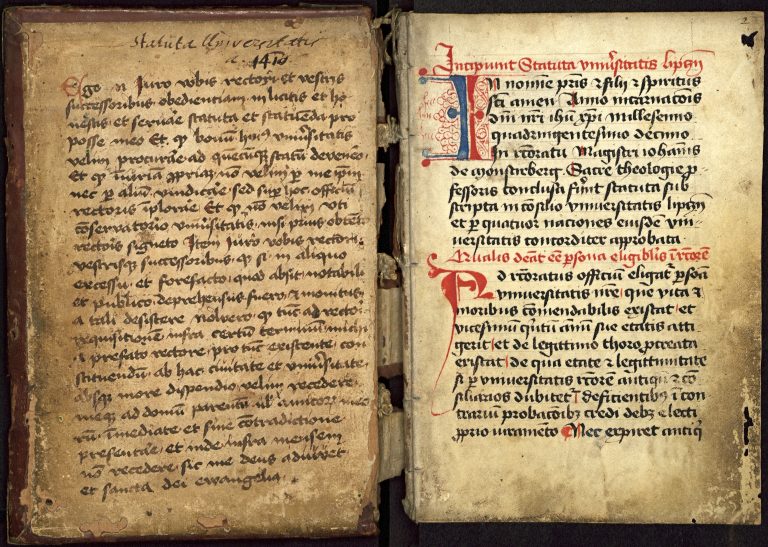 Statuta Universitatis
a. 1410
Ego N Juro vobis rectori et vestris
successoribus obedientiam in licitis et ho
nestis et servare statuta et statuenda pro
posse meo Et qd bonum huius universitatis
velim procurare ad quecunque statum devenero
Et qd iniuriam propriam non velim per me ipsum
nec per alium vindicare sed super hoc officium
rectoris implorare Et qd non velim uti
conservatorio universitatis nisi prius obtento
rectoris signeto Item Juro vobis rectori
vestrisque successoribus qd si in aliquo
excessu et forefacto quod absit notabili
et publico deprehensus fuero et monitus
a tali desistere nolvero qd tunc ad rectoris
requisitionem infra certum terminum michi
a prefato rectore pro tunc existente con
stituendum ab hac civitate et universitate
absque more dispendio velim recedere
meque ad domum parentum vel amicorum meo
rum immediate et sine contradictione
presentare et inde infra mensem
non recedere sic me deus adiuvet
et sancta dei ewangelia
2
Incipiunt Statuta universitatis lipczen
IN nomine patris et filii et spiritus
sancti amen Anno incarnationis
domini nostri ihesu xpi Millesimo
quadringentesimo decimo
In rectoratu Magistri iohannis
de monsterberg Sacre theologie p
fessoris conclusa sunt statuta sub
scripta in consilio universitatis lipczen
et per quatuor naciones eiusdem uni
versitatis concorditer approbata
Qualis debeat esse persona eligibilis in rectorem
Ad rectoratus officium eligatur persona
universitatis nostre que vita et
moribus commendabilis existat et
vicesimum quintum annum sue etatis atti
gerit et de legittimo thoro procreata
existat de qua etate et legittimitate
si per universitatis rectorem antiquum et con
siliarios dubitetur deficientibus in con
trarium probacionibus credi debet electi
proprio iuramento Nec expiret antiqui